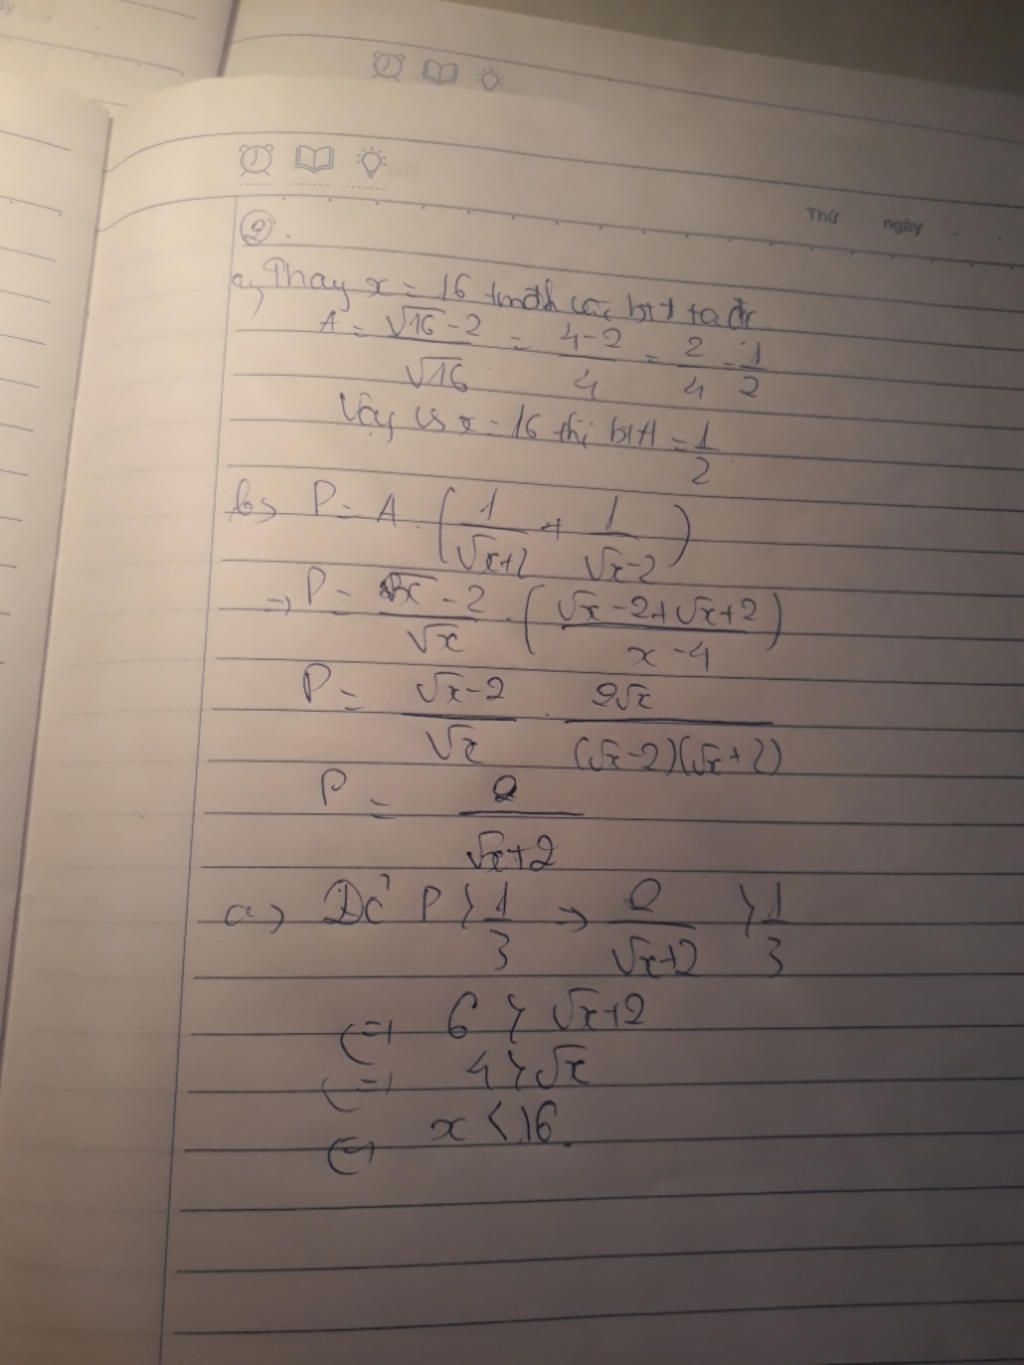 Thứ ngày
②.
a, Thay x = 16 vào bt ta đc
A = √16 - 2 / √16 = 4-2 / 4 = 2/4 = 1/2
Vậy vs x = 16 thì bt A = 1/2
b, P = A . (1/(√x+2) + 1/(√x-2))
→ P = (√x - 2)/√x . ((√x - 2 + √x + 2)/(x - 4))
P = (√x - 2)/√x . 2√x/((√x-2)(√x+2))
P = 2/(√x+2)
c, Để P > 1/3 → 2/(√x+2) > 1/3
(=) 6 > √x+2
(=) 4 > √x
(=) x < 16.